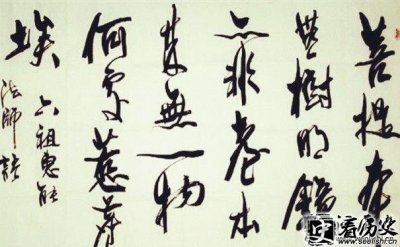 菩提本
無樹明鏡
亦非臺本
来無一物
何處惹塵
埃 六祖惠能
法師
看历史